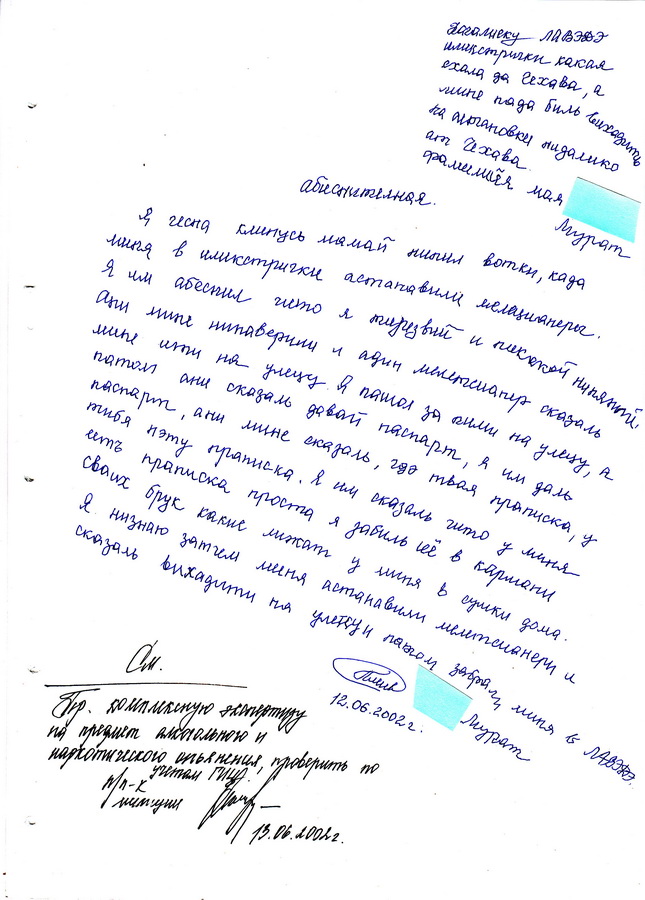 Началнеку ЛАВЭДЭ
иликтрички какая
ехала да Чехава, а
мине нада биль виихадить
на астановки нидалико
ат Чехава.
фамилия мая
Мурат
абиснителная.
Я чесна клинусь мамай нипил вотки, када
миня в иликстрички астанавили мелицианеры.
Я им абеснил што я тирезвий и никакой нипяний.
Ани мине нипаверили и адин мелитсианер сказаль
мине ити на улецу. Я пашол за ними на улецу, а
патом ани сказаль давай паспарт, я им даль
паспарт, ани мине сказаль, где твая праписка, у
тибя нэту праписка. Я им сказаль што у миня
есть праписка проста я забиль её в кармани
сваих брук какие лижат у миня в сумки дома.
Я низнаю зачем миня астанавили мелитсианери и
сказаль вихадити на улецу и патом забрали миня в ЛАВЭДЭ.
12.06.2002г.
Мурат
См.
Пр. комплексную экспертизу
на предмет алкогольного и
наркотического опьянения, проверить по
учетам ГИЦ.
п/п-к
милиции
13.06.2002г.